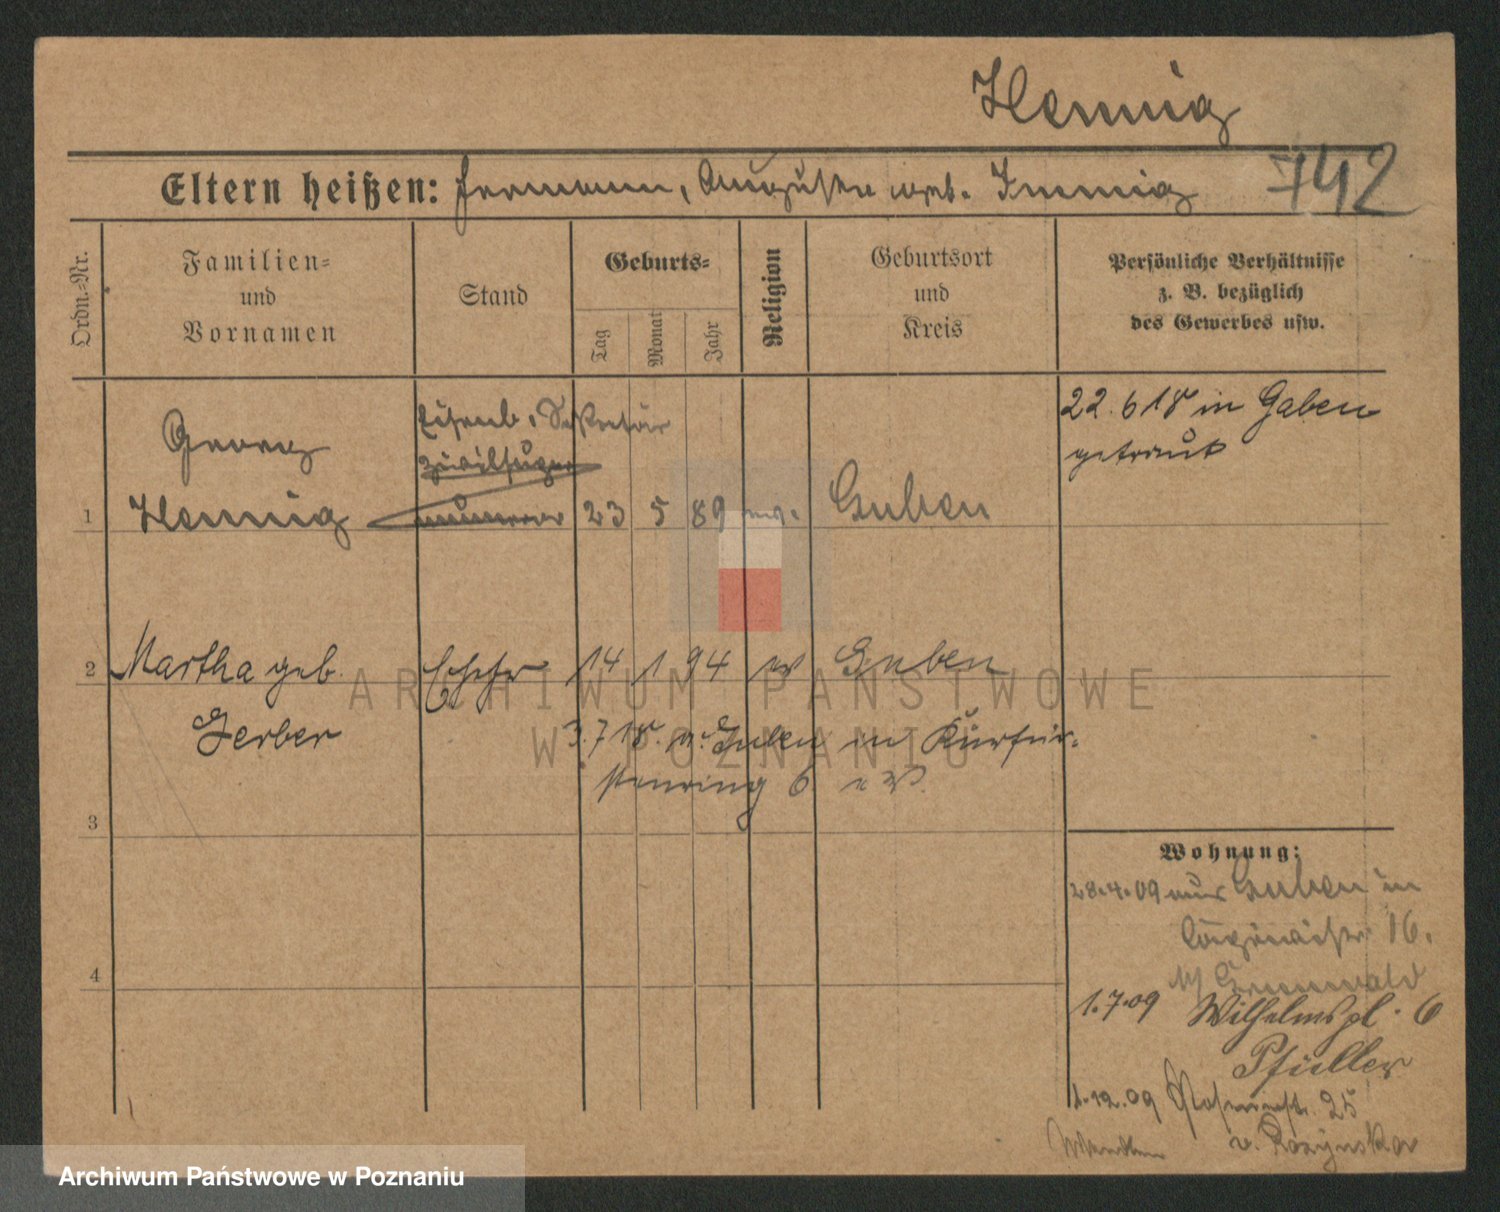 Hennig
742
Eltern heißen: Hermann, Auguste geb. Immig
Ordn.-Nr.
Familien-
und
Vornamen
Stand
Geburts-
Tag
Monat
Jahr
Religion
Geburtsort
und
Kreis
Persönliche Verhältnisse
z. B. bezüglich
des Gewerbes usw.
22.6 18 in Guben
getraut
Georg
Eisenb. Sekretär
Zivilsuper
numerar
1 Hennig 23 5 89 ev. Guben
2 Martha geb. Ehefr 14 1 94 ev Guben
Gerber
3.7 18. v. Guben in Kurfür-
stenring 6
3
4
Wohnung:
28.4.09 aus Guben in
16.
b/ Grunwald
1.7.09 Wilhelmspl. 6
Pfüller
1.12.09 Posenerstr. 25
v. Rozynska
ARCHIWUM PAŃSTWOWE
W POZNANIU
Archiwum Państwowe w Poznaniu